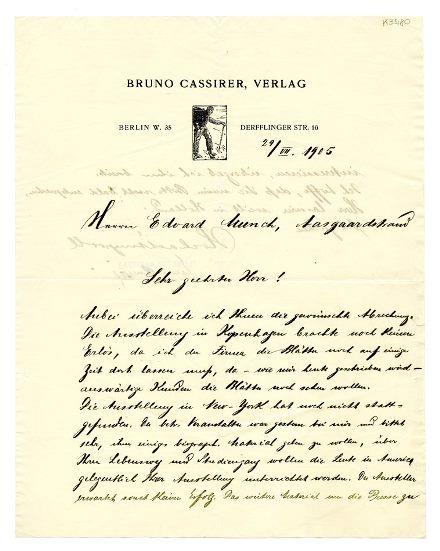 K3580
BRUNO CASSIRER, VERLAG
BERLIN W. 35
DERFFLINGER STR. 10
29/VII. 1905
Herrn Edvard Munch, Aasgaardstrand
Sehr geehrter Herr!
Anbei überreiche ich Ihnen die gewünschte Abrechnung.
Die Ausstellung in Kopenhagen brachte noch keinen
Erlös, da ich der Firma die Blätter noch auf einige
Zeit dort lassen muß, da - wie mir heute geschrieben wird -
auswärtige Kunden die Blätter noch sehen wollen.
Die Ausstellung in New-York hat noch nicht statt-
gefunden. Der betr. Veranstalter war gestern bei mir und bittet
sehr, ihm einiges biograph. Material geben zu wollen, über
Ihren Lebensweg und Studiengang wollen die Leute in America
gelegentlich Ihrer Ausstellung unterrichtet werden. Der Aussteller
erwartet sonst keinen Erfolg. Das weitere um die Presse zu